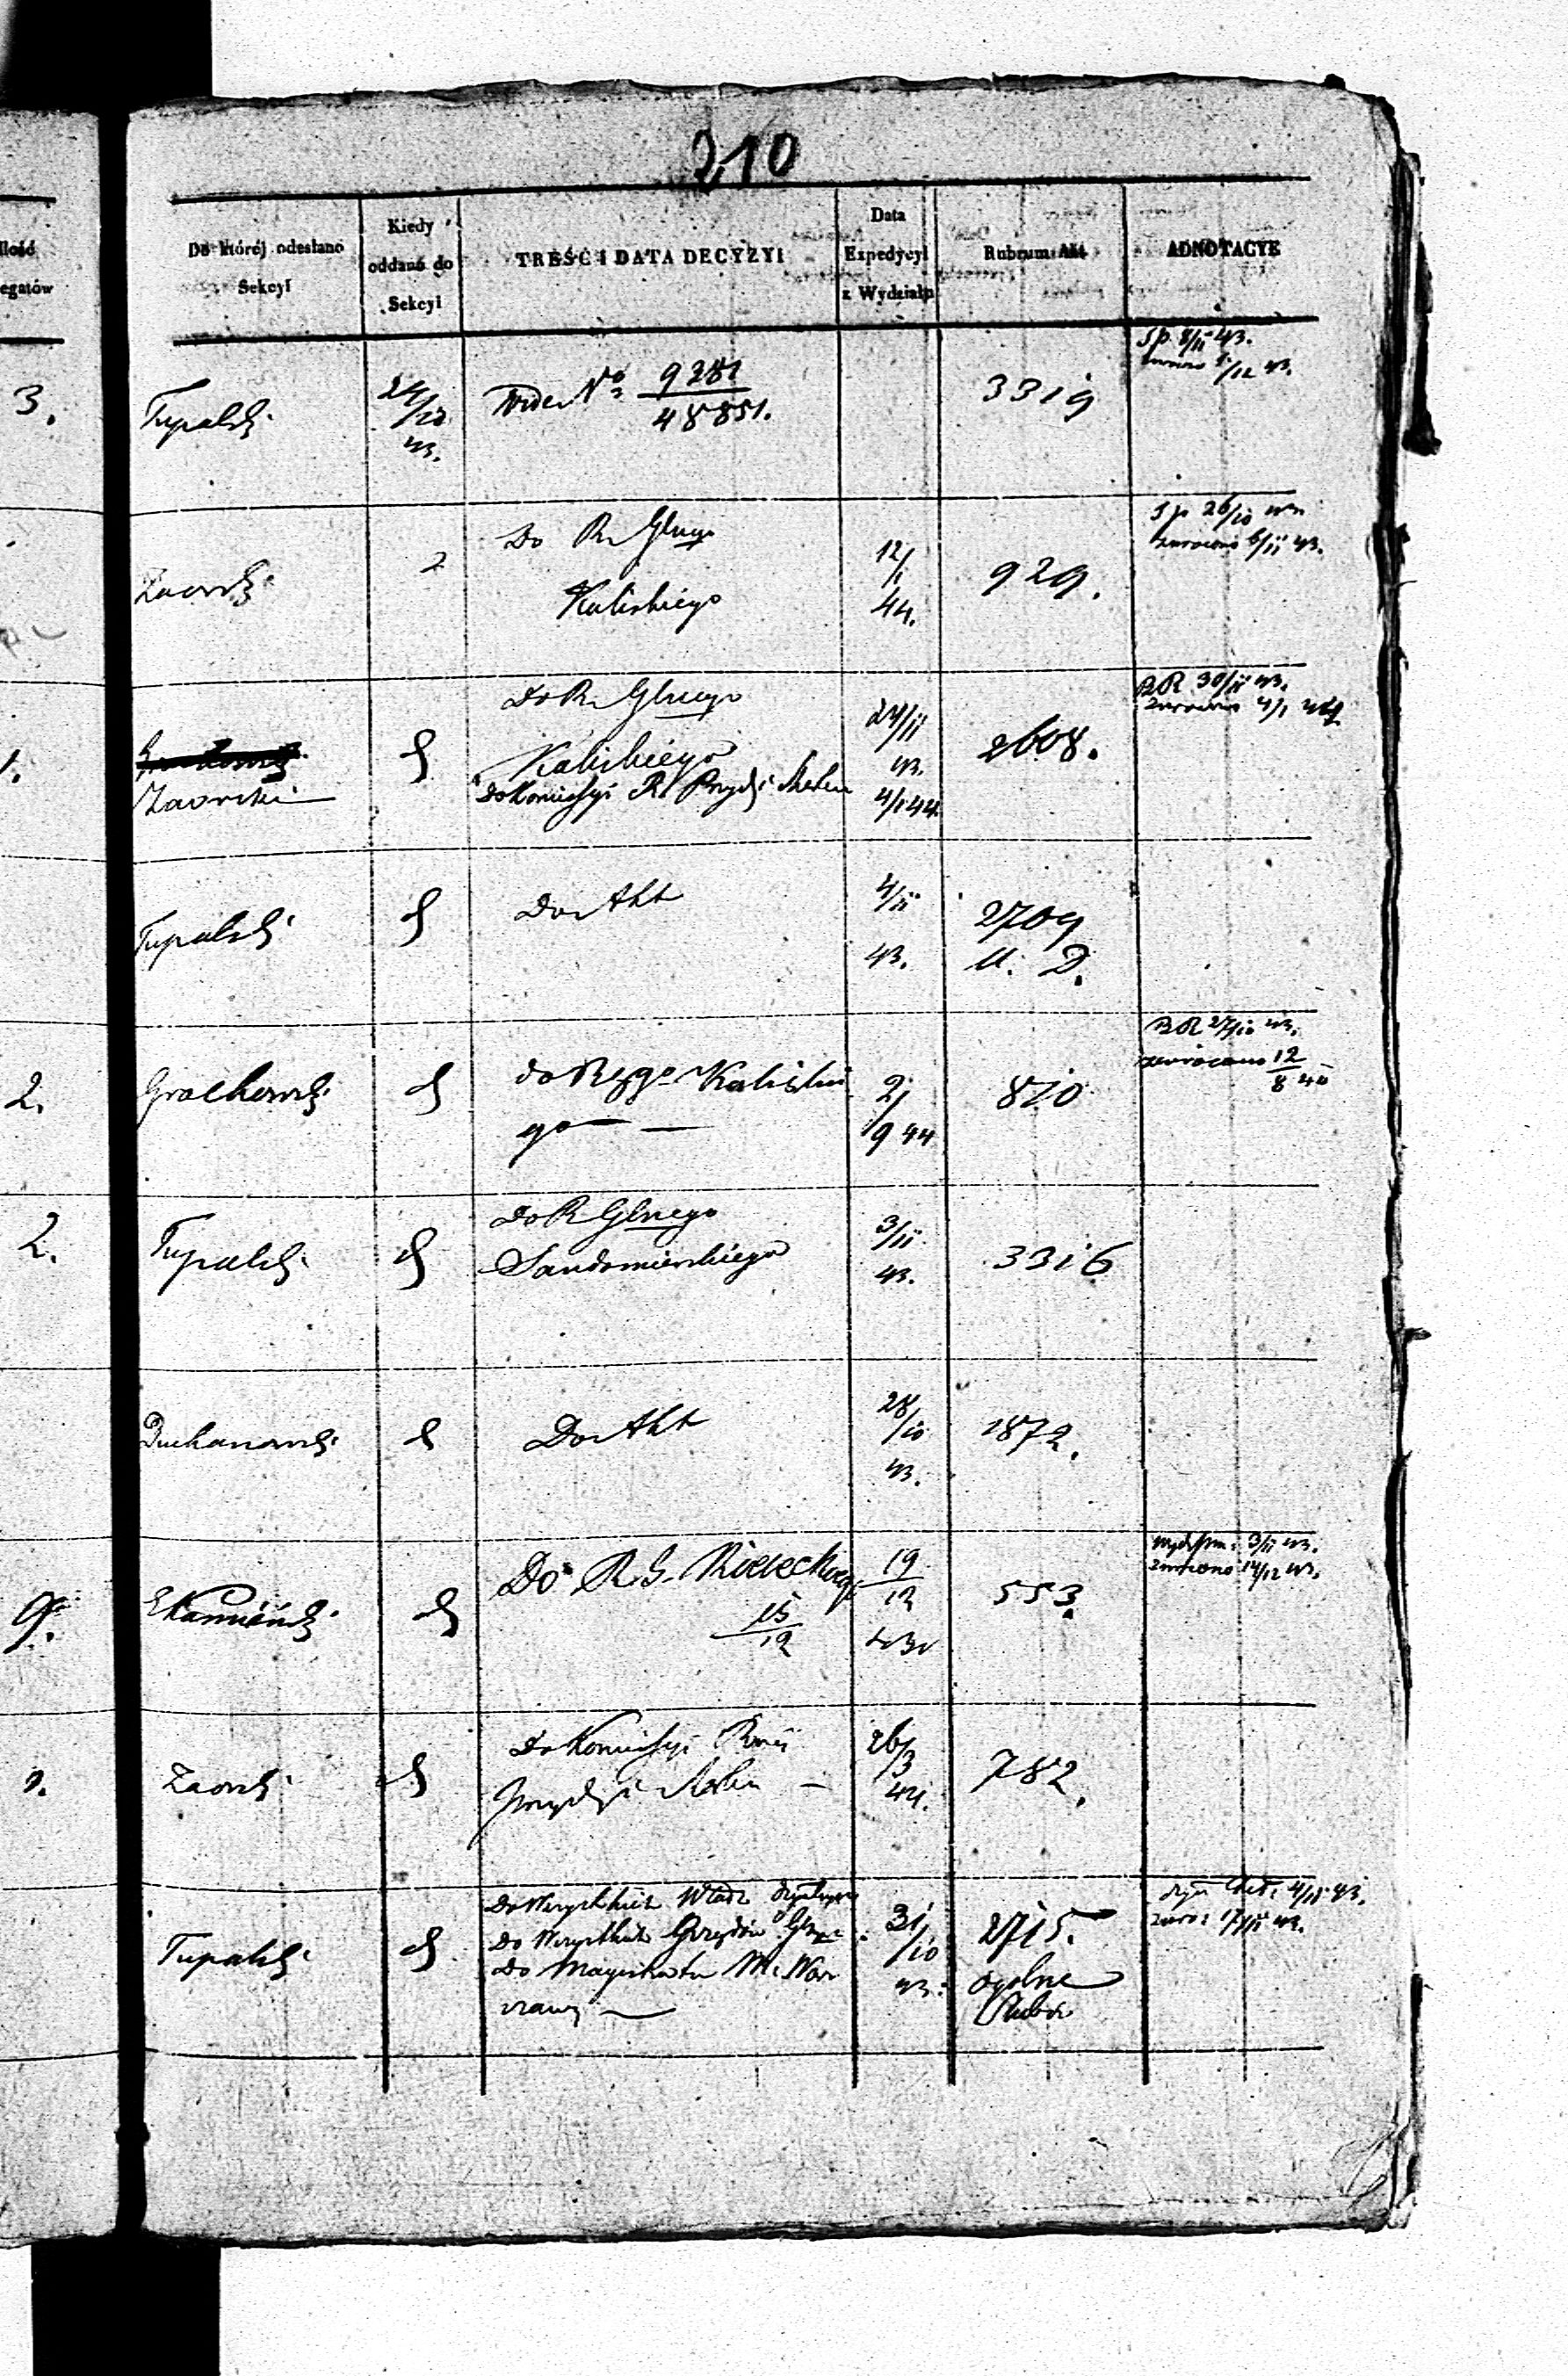 210
Ilość
egatów
Do której odesłano
Sekcyi
Kiedy
oddano do
Sekcyi
TREŚĆ I DATA DECYZYI
Data
Expedycyi
z Wydziału
Rubrum Akt
ADNOTACYE
3.
Tupalski
24/10
43.
Vide No 9281
48851.
3319
Sp. 8/11 43.
zwrócono /12 43.
Zaorski
Do R. Glnego
Kaliskiego
12/1
44.
929.
Sp 26/10 43
zwrócono 6/11 43.
1.
Zaorski
Do R. Glnego
Kaliskiego
Do Komissyi R. Przych i Skarbu
24/11
43.
4/1 44.
2608.
BR 30/11 43.
zwrócono 4/1 44
Tupalski
Do Akt
4/11
43.
2709
U. D.
2.
Grochowski
do Rząo Kaliskie
go —
2/
9 44
810
BR 27/10 43.
zwrócono 12/8 45
2.
Tupalski
Do R Glnego
Sandomierskiego
3/11
43.
3316
Duchanowski
Do Akt
28/10
43.
1872.
9.
EKamiński
Do R. G. Kieleckiego
15/12
19/12
43
553.
3/11 43.
zwrócono 14/12 43.
Zaorski
Do Komissyi Rzą
Przych i Skarbu —
26/3
44.
782.
Tupalski
Do Wszystkich Władz
Do Wszystkich Urzędów
Do Magistratu M. War
szawy —
31/10
43.
2715.
ogólne
Rubr
4/11 43.
zwró: 17/11 43.